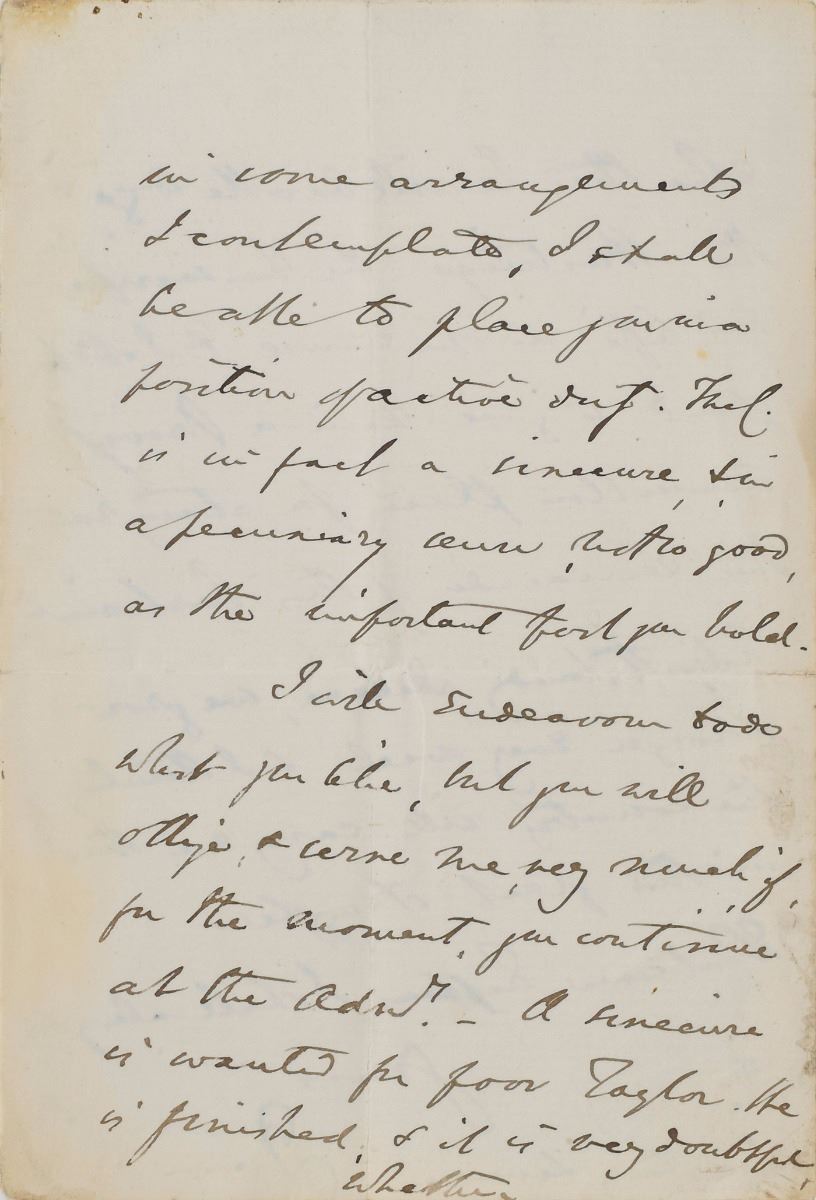 in some arrangements
I contemplate, I shall
be able to place you in a
position of active duty. The C.
is in fact a sinecure, & in
a pecuniary sense, not so good,
as the important post you hold.
I will endeavour to do
what you like, but you will
oblige, & serve me, very much, if,
for the moment, you continue
at the Admy. – A sinecure
is wanted for poor Taylor. He
is finished, & it is very doubtful,
whether